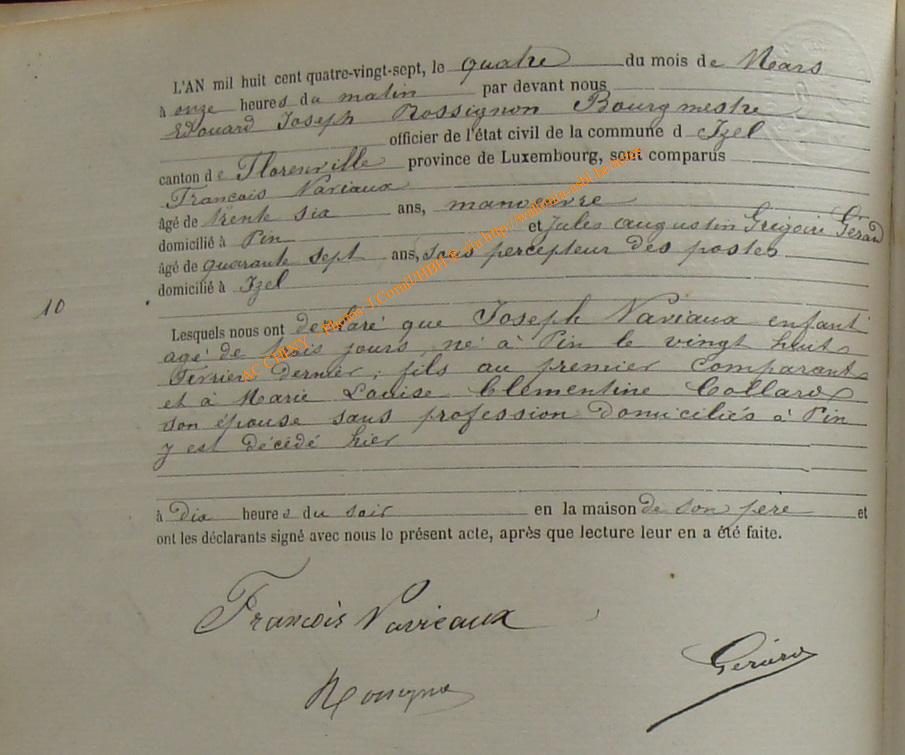 L'AN mil huit cent quatre-vingt-sept, le quatre du mois de Mars
à onze heures du matin par devant nous
Edouard Joseph Rossignon Bourgmestre
officier de l'état civil de la commune d Izel
canton de Florenville province de Luxembourg, sont comparus
François Naviaux
âgé de trente six ans, manoeuvre
domicilié à Pin et Jules Augustin Grégoire Gérard
âgé de quarante sept ans, sous percepteur des postes
domicilié à Izel
10
Lesquels nous ont déclaré que Joseph Naviaux enfant
agé de trois jours, né à Pin le vingt huit
Février dernier, fils au premier Comparant
et à Marie Louise Clémentine Collard
son épouse sans profession domiciliés à Pin
y est décédé hier
à dix heures du soir en la maison de son père et
ont les déclarants signé avec nous le présent acte, après que lecture leur en a été faite.
François Navieaux
Gérard
AC CHINY - Photos J.Cornil HBH Gedia http://wallonia.asbl.be.more